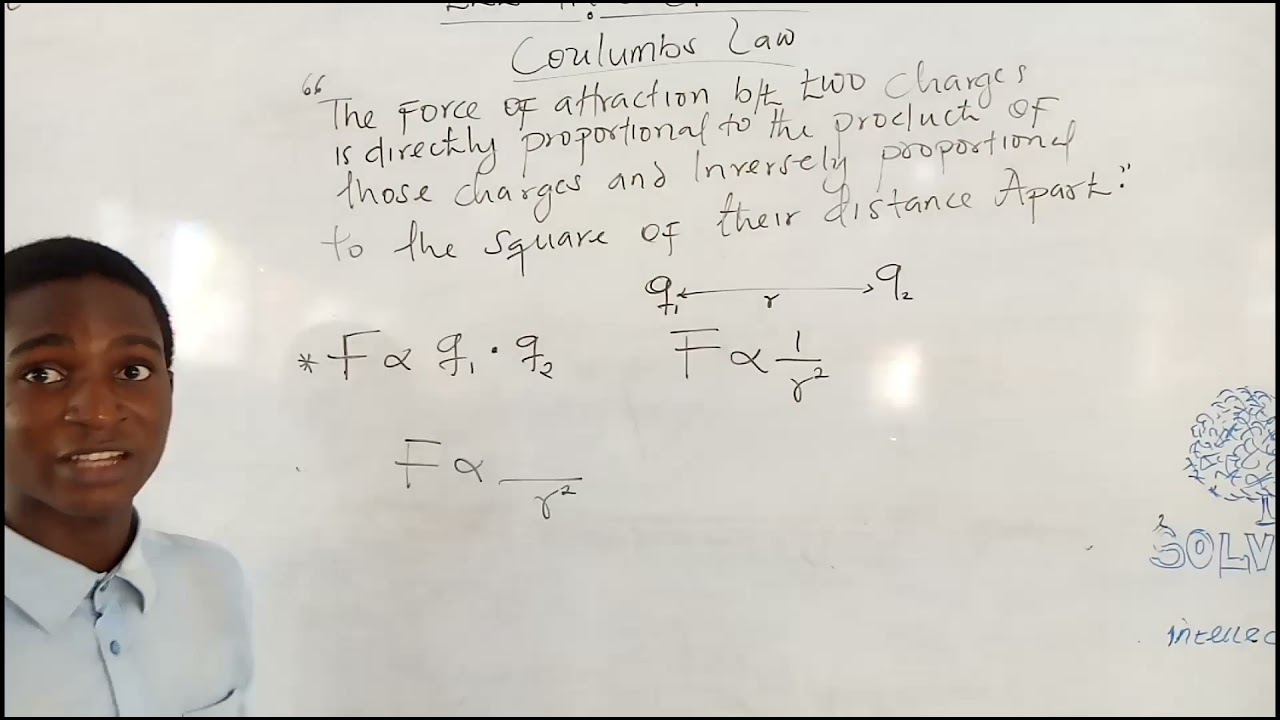 Coulumbs Law
"The Force OF attraction b/t two charges
is directly proportional to the product OF
those charges and Inversely proportional
to the square OF their distance Apart."
q₁ r q₂
* F ∝ q₁ · q₂ F ∝ 1/r²
F ∝ /r²
SOLV
intellec